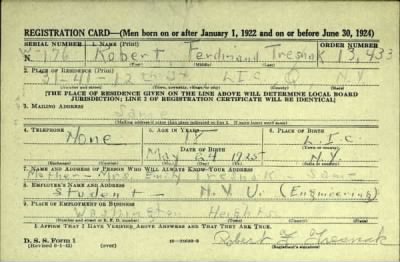 REGISTRATION CARD—(Men born on or after January 1, 1922 and on or before June 30, 1924)
SERIAL NUMBER 1. NAME (Print) ORDER NUMBER
W-176 Robert Ferdinand Tresnak 13,433
(First) (Middle) (Last)
2. PLACE OF RESIDENCE (Print)
31-41-12th St L.I.C. Q N.Y.
(Number and street) (Town, township, village, or city) (County) (State)
[THE PLACE OF RESIDENCE GIVEN ON THE LINE ABOVE WILL DETERMINE LOCAL BOARD
JURISDICTION; LINE 2 OF REGISTRATION CERTIFICATE WILL BE IDENTICAL]
3. MAILING ADDRESS
[Mailing address if other than place indicated on line 2. If same insert word same]
4. TELEPHONE 5. AGE IN YEARS 6. PLACE OF BIRTH
None 18 L.I.C.
DATE OF BIRTH (Town or county)
May 24 1925 N.Y.
(Exchange) (Number) (Mo.) (Day) (Yr.) (State or country)
7. NAME AND ADDRESS OF PERSON WHO WILL ALWAYS KNOW YOUR ADDRESS
Mother - Mrs. Emily Tresnak - Same
8. EMPLOYER'S NAME AND ADDRESS
Student - N.Y.U. (Engineering)
9. PLACE OF EMPLOYMENT OR BUSINESS
Washington Heights
(Number and street or R. F. D. number) (Town) (County) (State)
I AFFIRM THAT I HAVE VERIFIED ABOVE ANSWERS AND THAT THEY ARE TRUE.
D. S. S. Form 1
(Revised 6-1-42)
Robert F. Tresnak
(Registrant's signature)